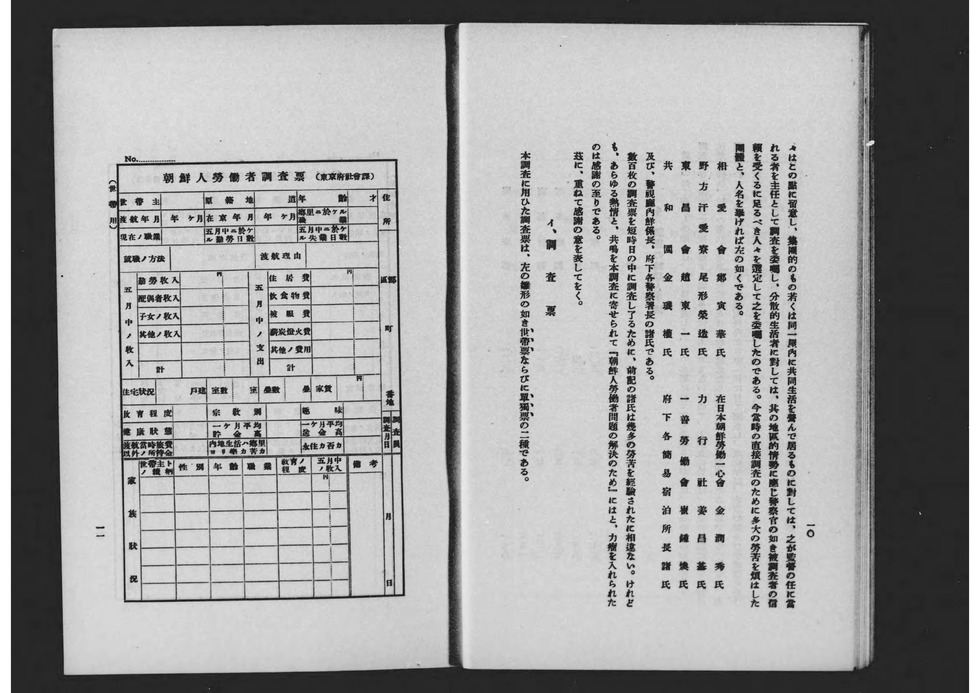 一〇
々はこの點に留意し、集團的のもの若くは同一屋内に共同生活を營んで居るものに對しては、之が監督の任に當
れる者を主任として調査を委囑し、分散的生活者に對しては、其の地區的情勢に應じ警察官の如き被調査者の信
頼を受くるに足るべき人々を選定して之を委囑したのである。今當時の直接調査のために多大の勞苦を煩はした
團體と、人名を擧ければ左の如くである。
相愛會 鄭寅華氏 在日本朝鮮勞働一心會 金潤秀氏
野方汗愛寮 尾形榮造氏 力行社 姜昌基氏
東昌會 趙東一氏 一善勞働會 崔鍾煥氏
共和園 金磯權氏 府下各簡易宿泊所長諸氏
及び、警視廳内鮮係長、府下各警察署長の諸氏である。
數百枚の調査票を短時日の中に調査し了るために、前記の諸氏は幾多の勞苦を經驗されたに相違ない。けれど
も、あらゆる熱情と、共鳴を本調査に寄せられて『朝鮮人勞働者問題の解決のため』にはと、力瘤を入れられた
のは感謝の至りである。
茲に、重ねて感謝の意を表してをく。
イ、調査票
本調査に用ひた調査票は、左の雛形の如き世帶票ならびに單獨票の二種である。
一一
(世帶用)
No.
朝鮮人勞働者調査票 (東京府社會課)
世帶主 原籍地 道 年齡 才
渡航年月 年ヶ月 在京年月 年ヶ月 鄕里ニ於ケル職業
現在ノ職業 五月中ニ於ケル勤勞日數 五月中ニ於ケル失職日數
就職ノ方法 渡航理由
五月中ノ收入
勤勞收入 円
配偶者收入
子女ノ收入
其他ノ收入
計
五月中ノ支出
住居費 円
飲食物費
被服費
薪炭燈火費
其他ノ費用
計
住宅狀況 戶建 室數 室 疊數 疊 家賃 円
教育程度 宗教別 趣味
健康狀態 一ケ月平均貯金高 一ケ月平均送金高
渡航當時旅費以外ノ所持金 内地生活ハ鄕里ヨリ樂カ苦カ 永住カ否カ
家族狀況
世帶主トノ續柄 性別 年齡 職業 教育ノ程度 五月中ノ收入 備考
円
住所
區郡
町
番地
調査員
調査月日
月
日